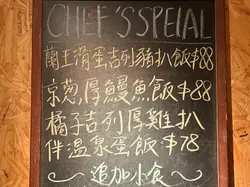 CHEF'S SPEIAL
蘭王滑蛋吉列豬扒飯$88
京葱厚鰻魚飯$88
橘子吉列厚雞扒
伴溫泉蛋飯:$78
~追加小食~